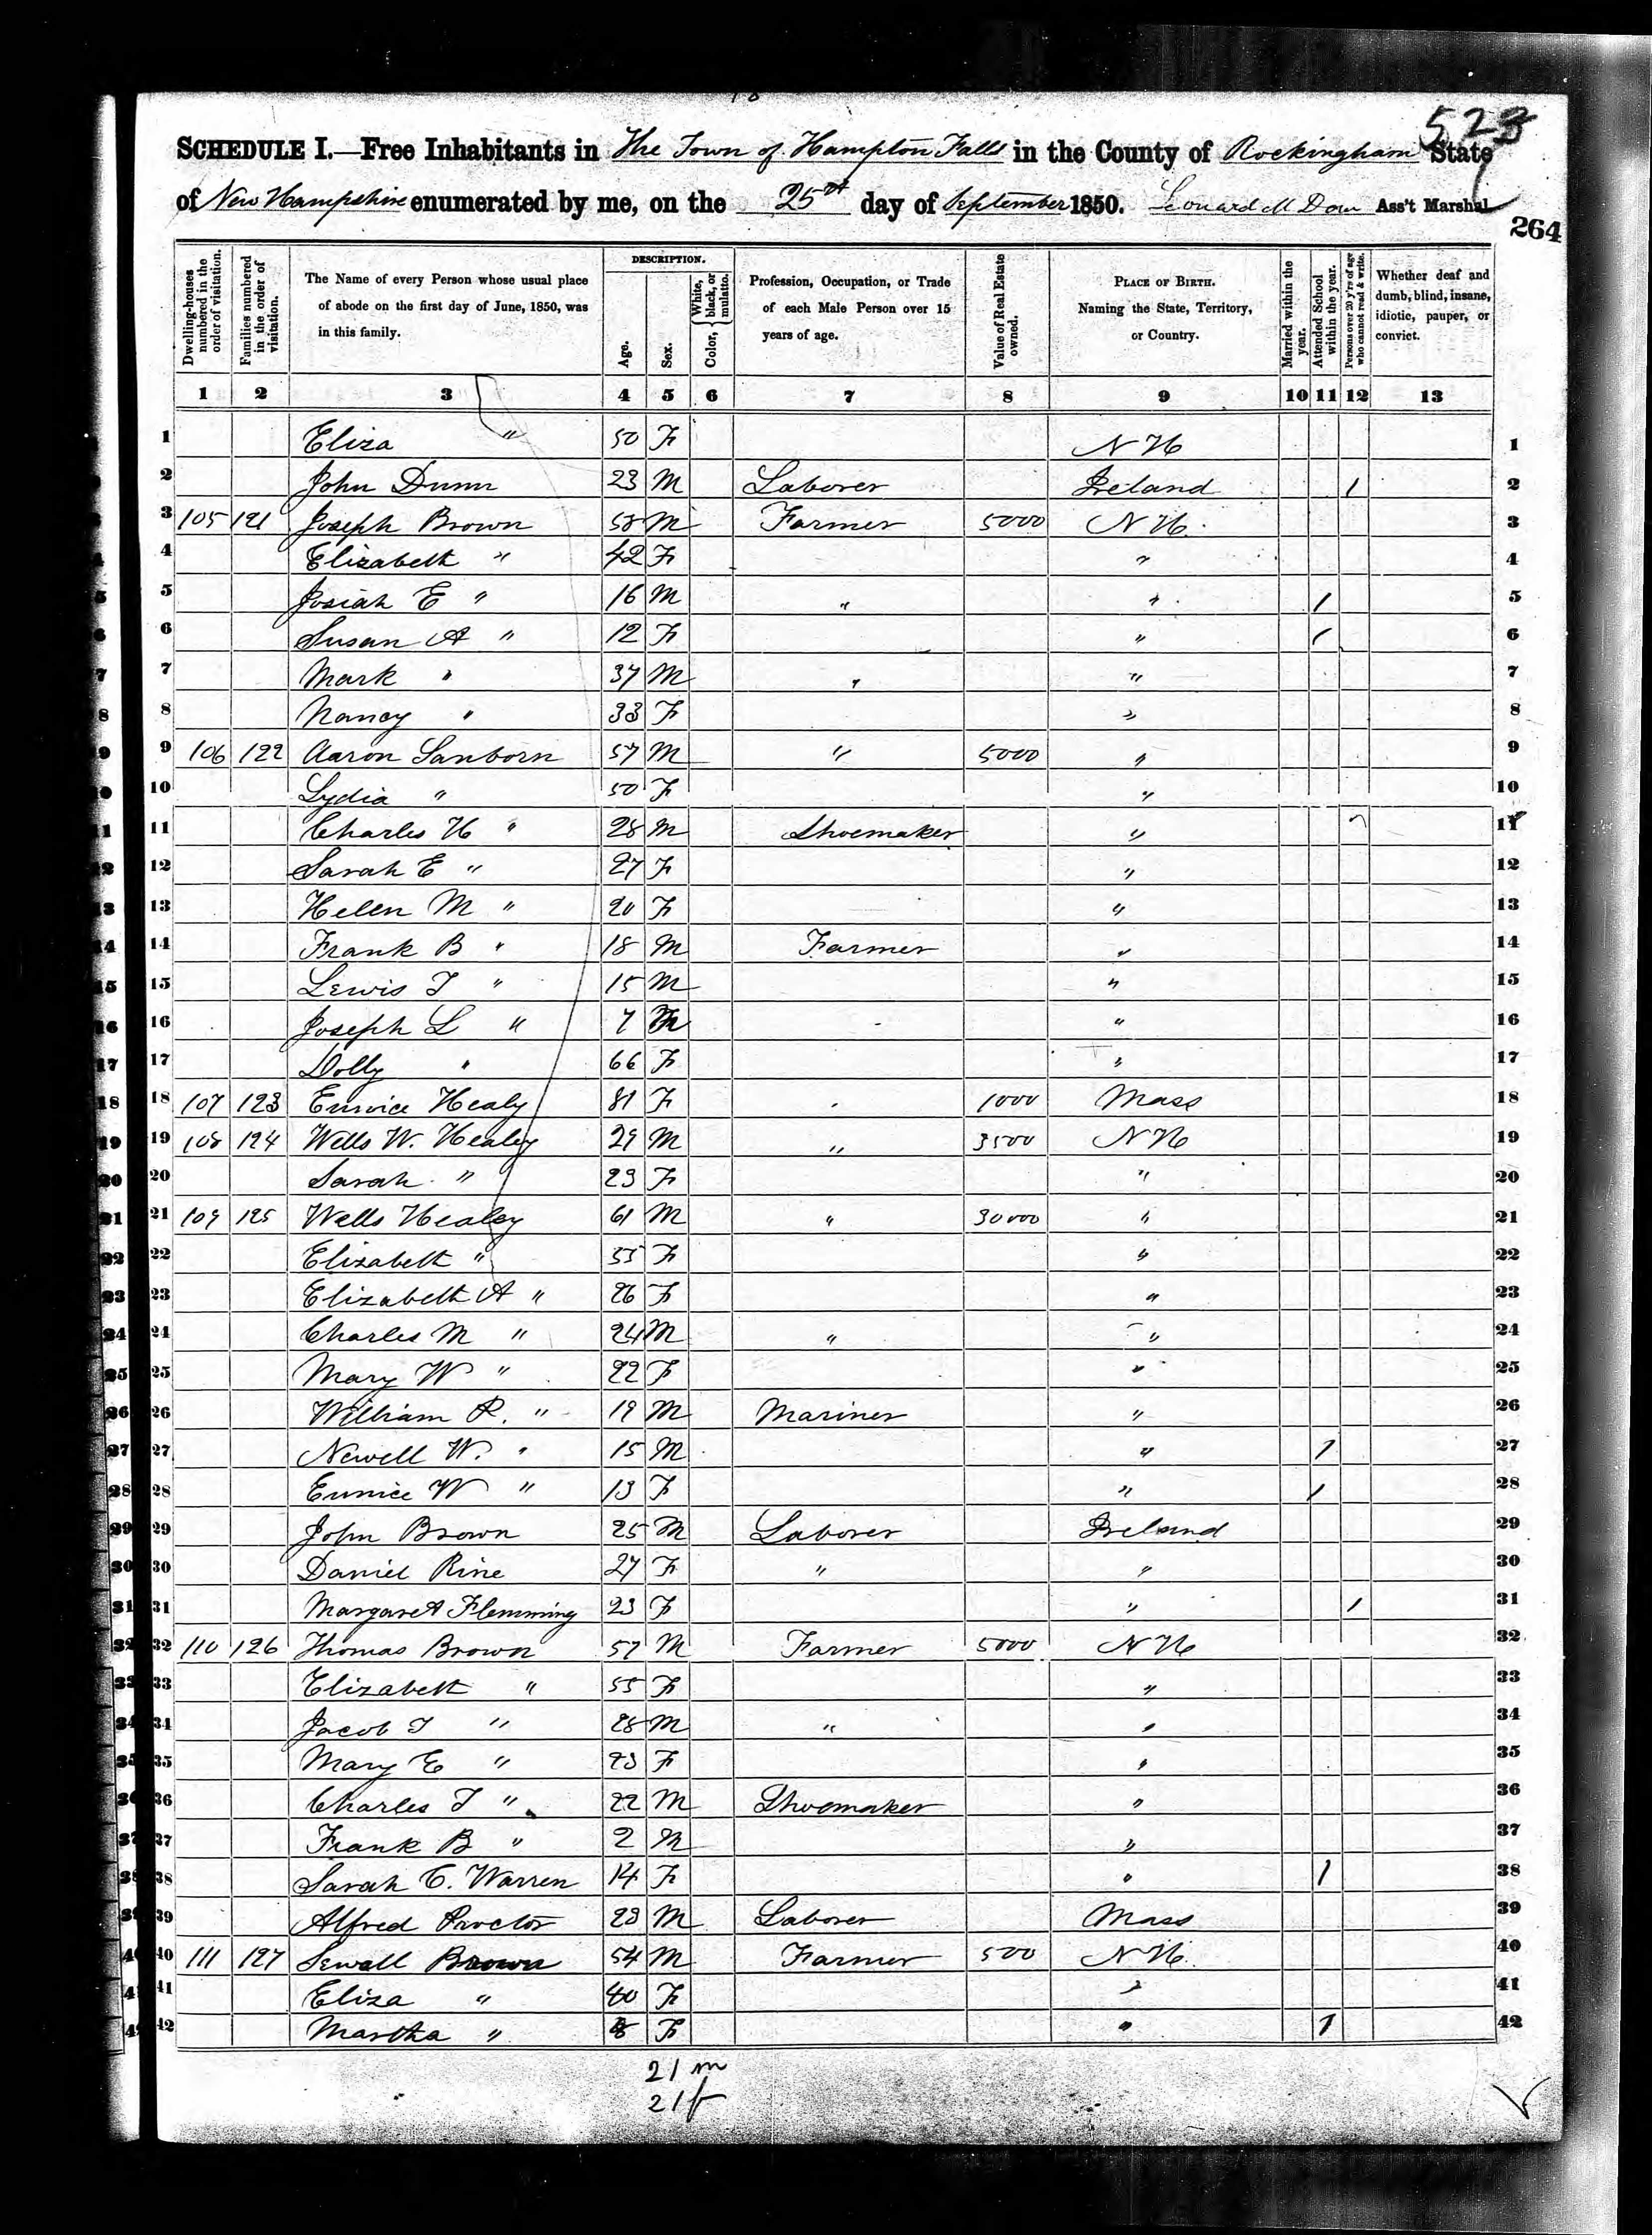 523
SCHEDULE I.—Free Inhabitants in The Town of Hampton Falls in the County of Rockingham State
of New Hampshire enumerated by me, on the 25th day of September 1850. Leonard M Dow Ass't Marshal
264
Dwelling-houses numbered in the order of visitation.
Families numbered in the order of visitation.
The Name of every Person whose usual place of abode on the first day of June, 1850, was in this family.
DESCRIPTION.
Age.
Sex.
Color, { White, black, or mulatto.
Profession, Occupation, or Trade of each Male Person over 15 years of age.
Value of Real Estate owned.
PLACE OF BIRTH. Naming the State, Territory, or Country.
Married within the year.
Attended School within the year.
Persons over 20 y'rs of age who cannot read & write.
Whether deaf and dumb, blind, insane, idiotic, pauper, or convict.
1 2 3 4 5 6 7 8 9 10 11 12 13
1 Eliza " 50 F N H 1
2 John Dunn 23 M Laborer Ireland 1 2
3 105 121 Joseph Brown 58 M Farmer 5000 N H. 3
4 Elizabeth " 42 F " 4
5 Josiah E " 16 M " " 1 5
6 Susan A " 12 F " 1 6
7 Mark " 37 M " " 7
8 Nancy " 33 F " 8
9 106 122 Aaron Sanborn 57 M " 5000 " 9
10 Lydia " 50 F " 10
11 Charles H " 28 M Shoemaker " 11
12 Sarah E " 27 F " 12
13 Helen M " 20 F " 13
14 Frank B " 18 M Farmer " 14
15 Lewis T " 15 M " 15
16 Joseph L " 7 M " 16
17 Dolly " 66 F " 17
18 107 123 Eunice Healy 81 F 1000 Mass 18
19 108 124 Wells W. Healey 29 M " 3500 N H 19
20 Sarah " 23 F " 20
21 109 125 Wells Healey 61 M " 30000 " 21
22 Elizabeth " 55 F " 22
23 Elizabeth A " 26 F " 23
24 Charles M " 24 M " " 24
25 Mary W " 22 F " 25
26 William R. " 19 M Mariner " 26
27 Newell W. " 15 M " 1 27
28 Eunice W " 13 F " 1 28
29 John Brown 25 M Laborer Ireland 29
30 Daniel Rine 27 F " " 30
31 Margaret Flemming 23 F " 1 31
32 110 126 Thomas Brown 57 M Farmer 5000 N H 32
33 Elizabeth " 55 F " 33
34 Jacob T " 28 M " " 34
35 Mary E " 23 F " 35
36 Charles T " 22 M Shoemaker " 36
37 Frank B " 2 M " 37
38 Sarah C. Warren 14 F " 1 38
39 Alfred Proctor 23 M Laborer Mass 39
40 111 127 Sewall Brown 54 M Farmer 500 N H. 40
41 Eliza " 40 F " 41
42 Martha " 8 F " 1 42
21 m
21 f